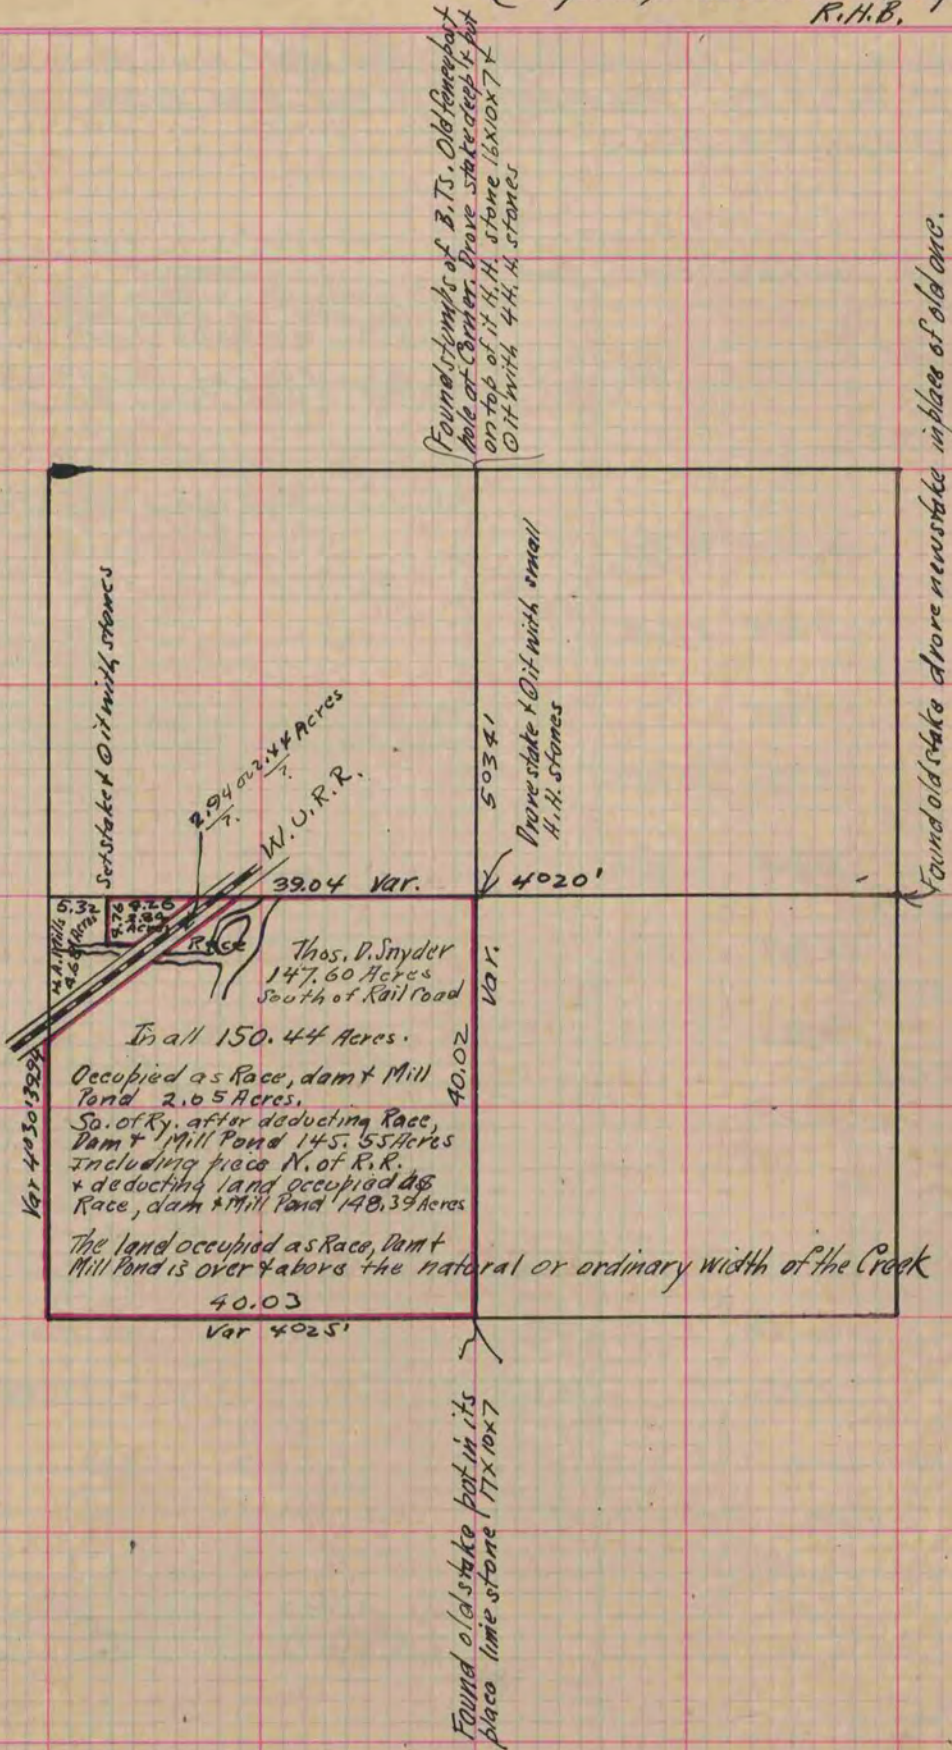 R.H.B.
Found stumps of B.Ts. Old fence post
hole at Corner. Drove stake deep & put
on top of it H.H. stone 16x10x7 &
⊙ it with 4 H.H. stones
Found old stake drove new stake in place of old one.
Set stake & ⊙ it with stones
Drove stake & ⊙ it with small
H.H. stones
5°34'
2.94 or 2.44 Acres
?
?
W.U.R.R.
39.04 Var.
4°20'
5.32
H.A. Mills
Acres
4.26
4.76
Race
Thos. D. Snyder
147.60 Acres
South of Rail road
Var.
40.02
In all 150.44 Acres.
Occupied as Race, dam & Mill
Pond 2.05 Acres.
So. of Ry. after deducting Race,
Dam & Mill Pond 145.55 Acres
Including piece N. of R.R.
& deducting land occupied as
Race, dam & Mill Pond 148.39 Acres
The land occupied as Race, Dam &
Mill Pond is over & above the natural or ordinary width of the Creek
Var 4°30' 39.94
40.03
Var 4°25'
Found old stake put in its
place lime stone 17x10x7